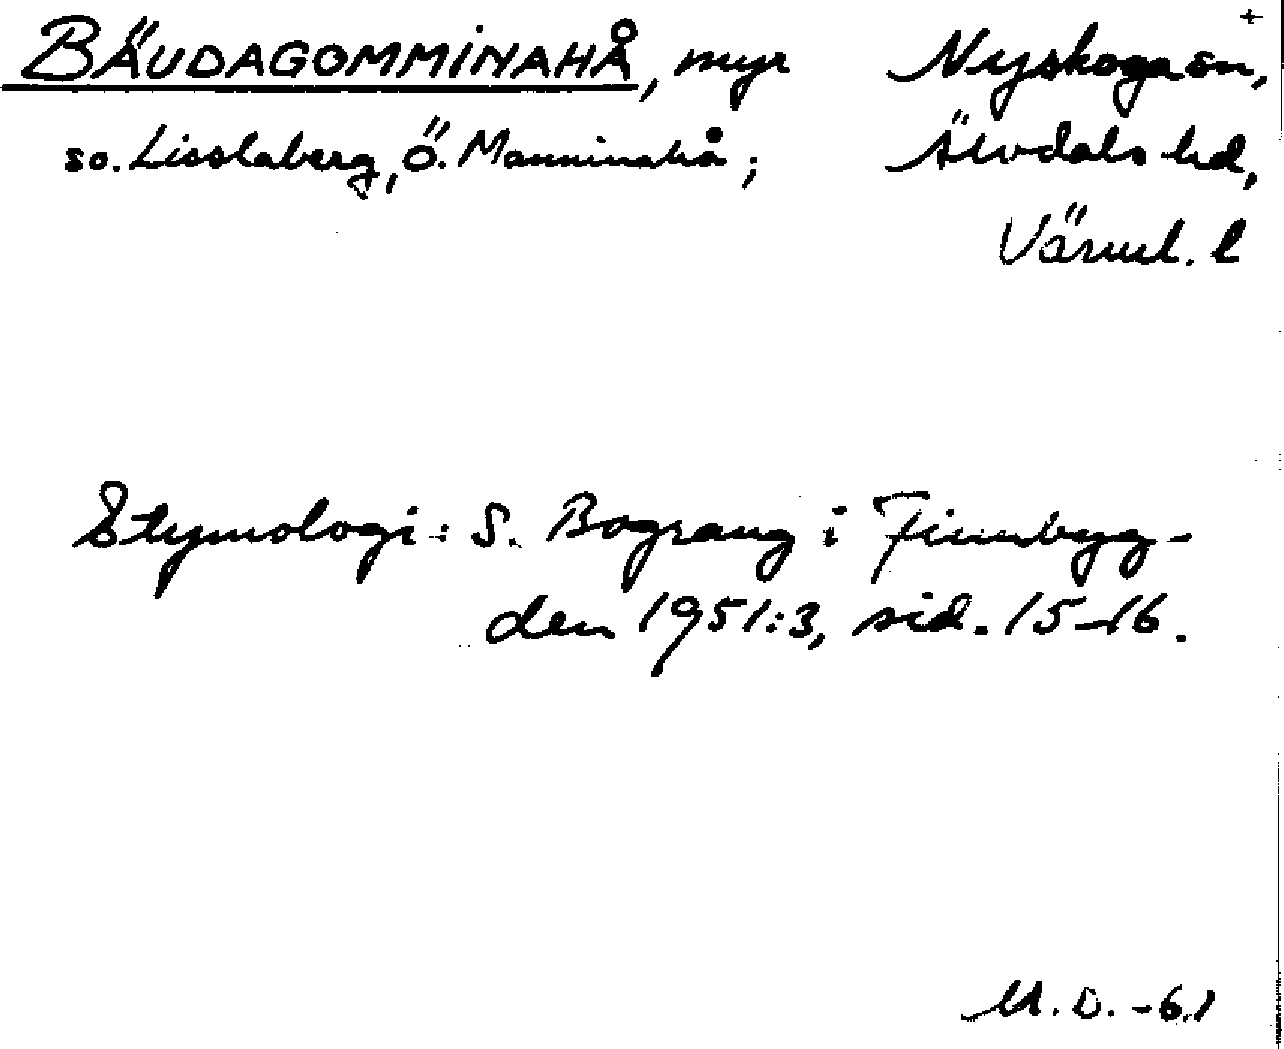 BÄUDAGOMMINAHÅ, myr Nyskoga sn, +
so. Lisslaberg, Ö. Manninahå; Älvdals hd,
Värml. l
Etymologi: S. Bograng i Finnbyg-
den 1951:3, sid. 15-16.
M.D. -61